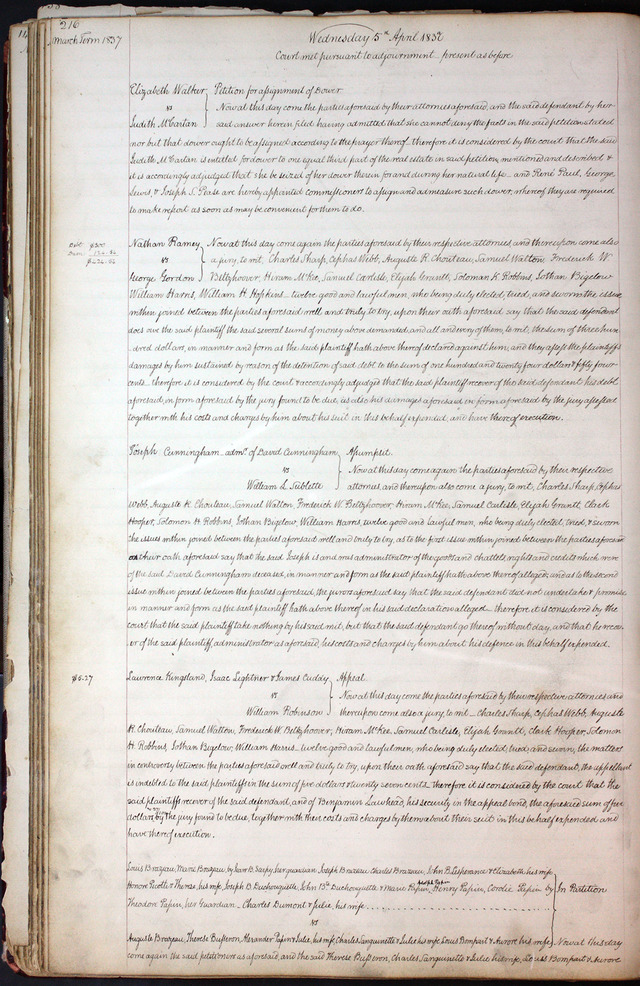 216
March Term 1837
Wednesday 5th April 1837
Court met pursuant to adjournment present as before
Elizabeth Walker Petition for assignment of Dower
vs Now at this day come the parties aforesaid by their attornies aforesaid, and the said defendant by her
Judith McCartan said answer herein filed having admitted that she cannot deny the facts in the said petition stated
nor but that dower ought to be assigned according to the prayer thereof therefore it is considered by the court that the said
Judith McCartan is entitled for dower to one equal third part of the real estate in said petition, mentioned and described &
it is accordingly adjudged that she be seized of her dower therein for and during her natural life and René Paul, George
Lewis, & Joseph S. Pease are hereby appointed commissioners to assign and admeasure such dower, whereof they are required
to make report as soon as may be convenient for them to do.
Debt $300
Dam: 124.54
$424.54
Nathan Ramey Now at this day come again the parties aforesaid by their respective attornies and thereupon come also
vs a jury, to wit, Charles Sharp, Cephas Webb, Auguste R. Chouteau, Samuel Watton, Frederick W
George Gordon Beltzhoover, Hiram McKee, Samuel Carlisle, Elijah Grantt, Soloman H. Robbins, Lothan Bigelow
William Harris, William H. Hopkins twelve good and lawful men, who being duly elected, tried, and sworn the issue
within joined between the parties aforesaid well and truly to try, upon their oath aforesaid say that the said defendant
does owe the said plaintiff the said several sums of money above demanded, and all and every of them, to wit, the sum of three hun
dred dollars, in manner and form as the said plaintiff hath above thereof declared against him; and they assess the plaintiffs
damages by him sustained by reason of the detention of said debt to the sum of one hundred and twenty four dollars & fifty four
cents therefore it is considered by the court & accordingly adjudged that the said plaintiff recover of the said defendant his debt
aforesaid, in form aforesaid by the jury found to be due, as also his damages aforesaid in form aforesaid by the jury assessed
together with his costs and charges by him about his suit in this behalf expended, and have thereof execution.
Joseph Cunningham admr. of David Cunningham Assumpsit.
vs Now at this day come again the parties aforesaid by their respective
William L Sublette attornies, and thereupon also come a jury, to wit, Charles Sharp, Cephas
Webb, Auguste R. Chouteau, Samuel Watton, Frederick W. Beltzhoover, Hiram McKee, Samuel Carlisle, Elijah Grantt, Clark
Hooper, Solomon H. Robbins, Lothan Bigelow, William Harris, twelve good and lawful men, who being duly elected, tried, & sworn
the issues within joined between the parties aforesaid well and truly to try, as to the first issue within joined between the parties aforesaid
on their oath aforesaid say that the said Joseph is and was administrator of the goods and chattels, rights and credits which were
of the said David Cunningham deceased, in manner and form as the said plaintiff hath above thereof alleged; and as to the second
issue within joined between the parties aforesaid, the jurors aforesaid say that the said defendant did not undertake & promise
in manner and form as the said plaintiff hath above thereof in his said declaration alleged therefore it is considered by the
court that the said plaintiff take nothing by his said writ, but that the said defendant go thereof without day, and that he recov
er of the said plaintiff administrator as aforesaid, his costs and charges by him about his defence in this behalf expended.
$5.27
Lawrence Kingsland, Isaac Lightner & James Cuddy Appeal
vs Now at this day come the parties aforesaid by their respective attornies and
William Robinson thereupon come also a jury, to wit Charles Sharp, Cephas Webb, Auguste
R. Chouteau, Samuel Watton, Frederick W. Beltzhoover, Hiram McKee, Samuel Carlisle, Elijah Grantt, Clark Hooper, Solomon
H. Robbins, Lothan Bigelow, William Harris twelve good and lawful men, who being duly elected, tried, and sworn, the matters
in controversy between the parties aforesaid well and truly to try, upon their oath aforesaid say that the said defendant, the appellant
is indebted to the said plaintiffs in the sum of five dollars & twenty seven cents therefore it is considered by the court that the
said plaintiffs recover of the said defendant, and of Benjamin Lawhead, his security in the appeal bond, the aforesaid sum of five
dollars by the jury found to be due, together with their costs and charges by them about their suit in this behalf expended and
have thereof execution.
Louis Brazeau, Marie Brazeau by her guardian Joseph Brazeau Charles Brazeau, John B. Lesperance & Elizabeth, his wife
Honoré Picotte & Therese, his wife, Joseph B. Duchouquette, John Bte. Duchouquette & Marie Papin, Joseph Papin, Henry Papin, Cordie Papin by In Partition
Theodore Papin, her Guardian, Charles Dumont & Julie, his wife
vs
Auguste Brazeau, Therese Busseron, Alexander Papin & Julie, his wife, Charles Sanguinette & Julie his wife Louis Bompart & Aurore his wife Now at this day
come again the said petitioners as aforesaid, and the said Therese Busseron, Charles, Sanguinette & Julie his wife, Louis Bompart & Aurore